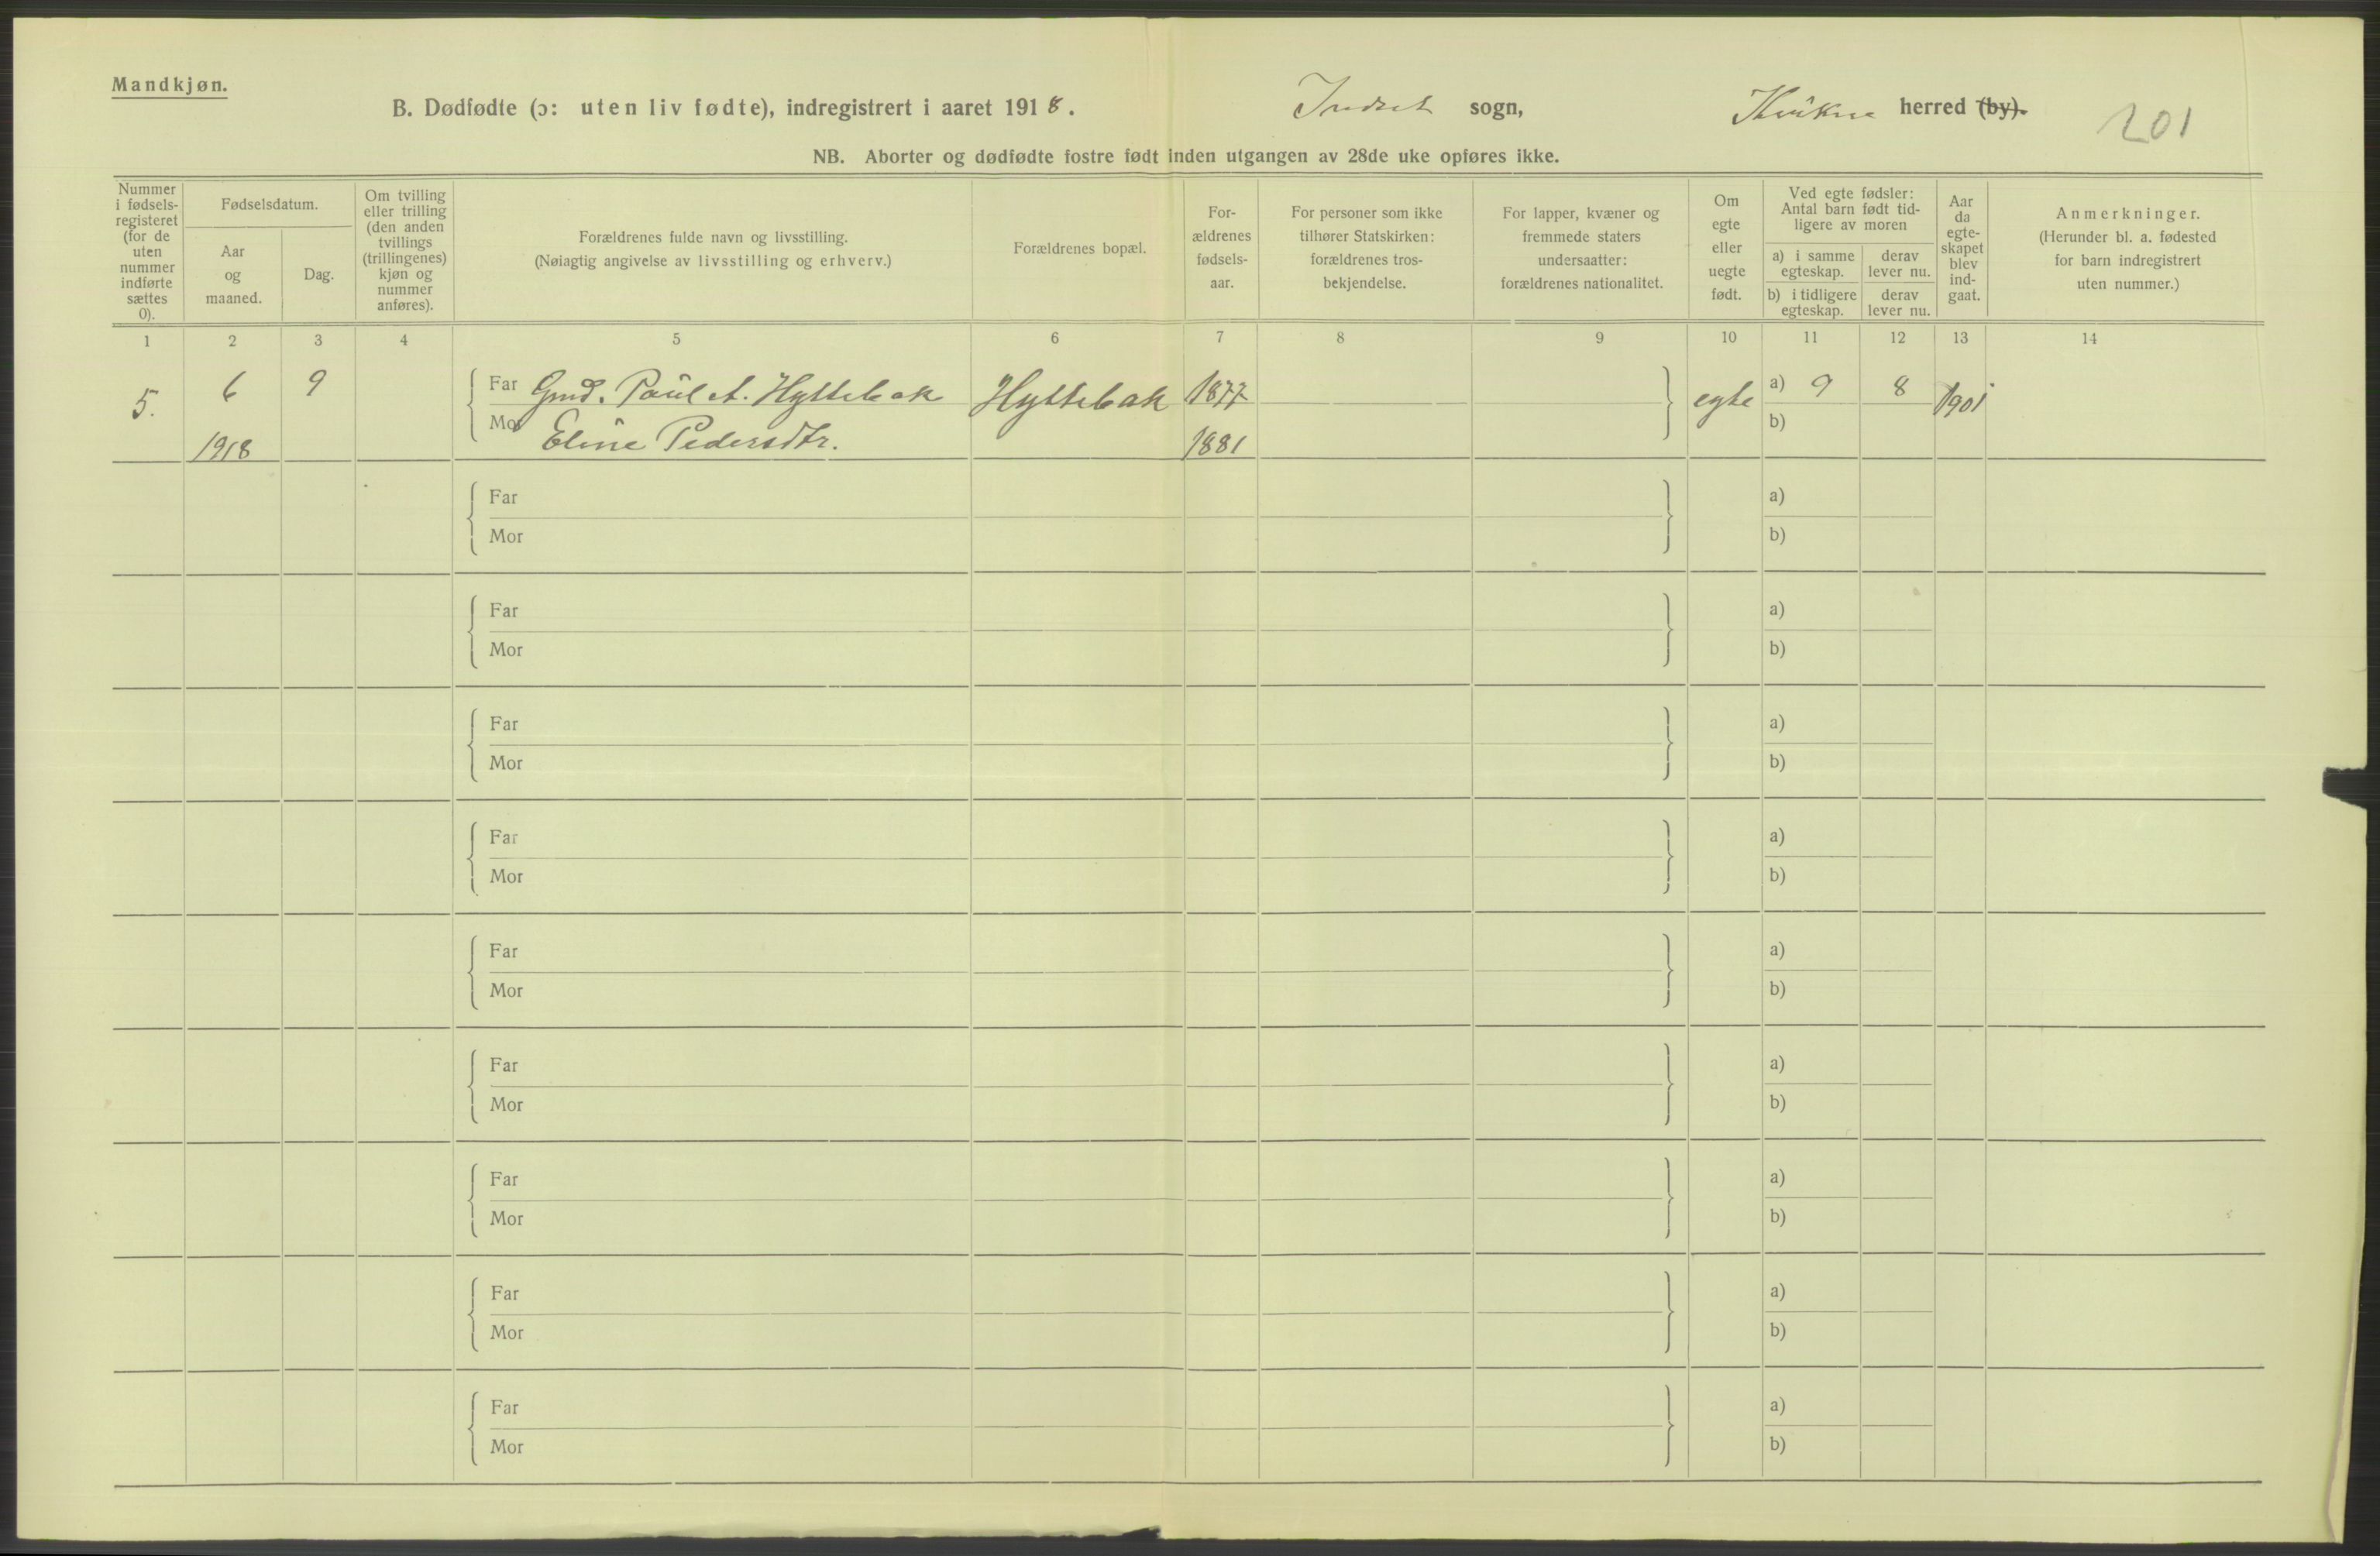 Mandkjøn.
B. Dødfødte (ɔ: uten liv fødte), indregistrert i aaret 1918. Indset sogn, Kvikne herred (by).
201
NB. Aborter og dødfødte fostre født inden utgangen av 28de uke opføres ikke.
Nummer i fødsels-registeret (for de uten nummer indførte sættes 0).
Fødselsdatum.
Aar og maaned.
Dag.
Om tvilling eller trilling (den anden tvillings (trillingenes) kjøn og nummer anføres).
Forældrenes fulde navn og livsstilling.
(Nøiagtig angivelse av livsstilling og erhverv.)
Forældrenes bopæl.
For-ældrenes fødsels-aar.
For personer som ikke tilhører Statskirken: forældrenes tros-bekjendelse.
For lapper, kvæner og fremmede staters undersaatter: forældrenes nationalitet.
Om egte eller uegte født.
Ved egte fødsler: Antal barn født tid-ligere av moren
a) i samme egteskap.
derav lever nu.
b) i tidligere egteskap.
derav lever nu.
Aar da egte-skapet blev ind-gaat.
Anmerkninger.
(Herunder bl. a. fødested for barn indregistrert uten nummer.)
1 2 3 4 5 6 7 8 9 10 11 12 13 14
5. 6 9 Far Gmd. Paul A. Hyttebak Hyttebak 1877 egte a) 9 8 1901
1918 Mor Eline Pedersdtr. 1881 b)
Far a)
Mor b)
Far a)
Mor b)
Far a)
Mor b)
Far a)
Mor b)
Far a)
Mor b)
Far a)
Mor b)
Far a)
Mor b)
Far a)
Mor b)
Far a)
Mor b)